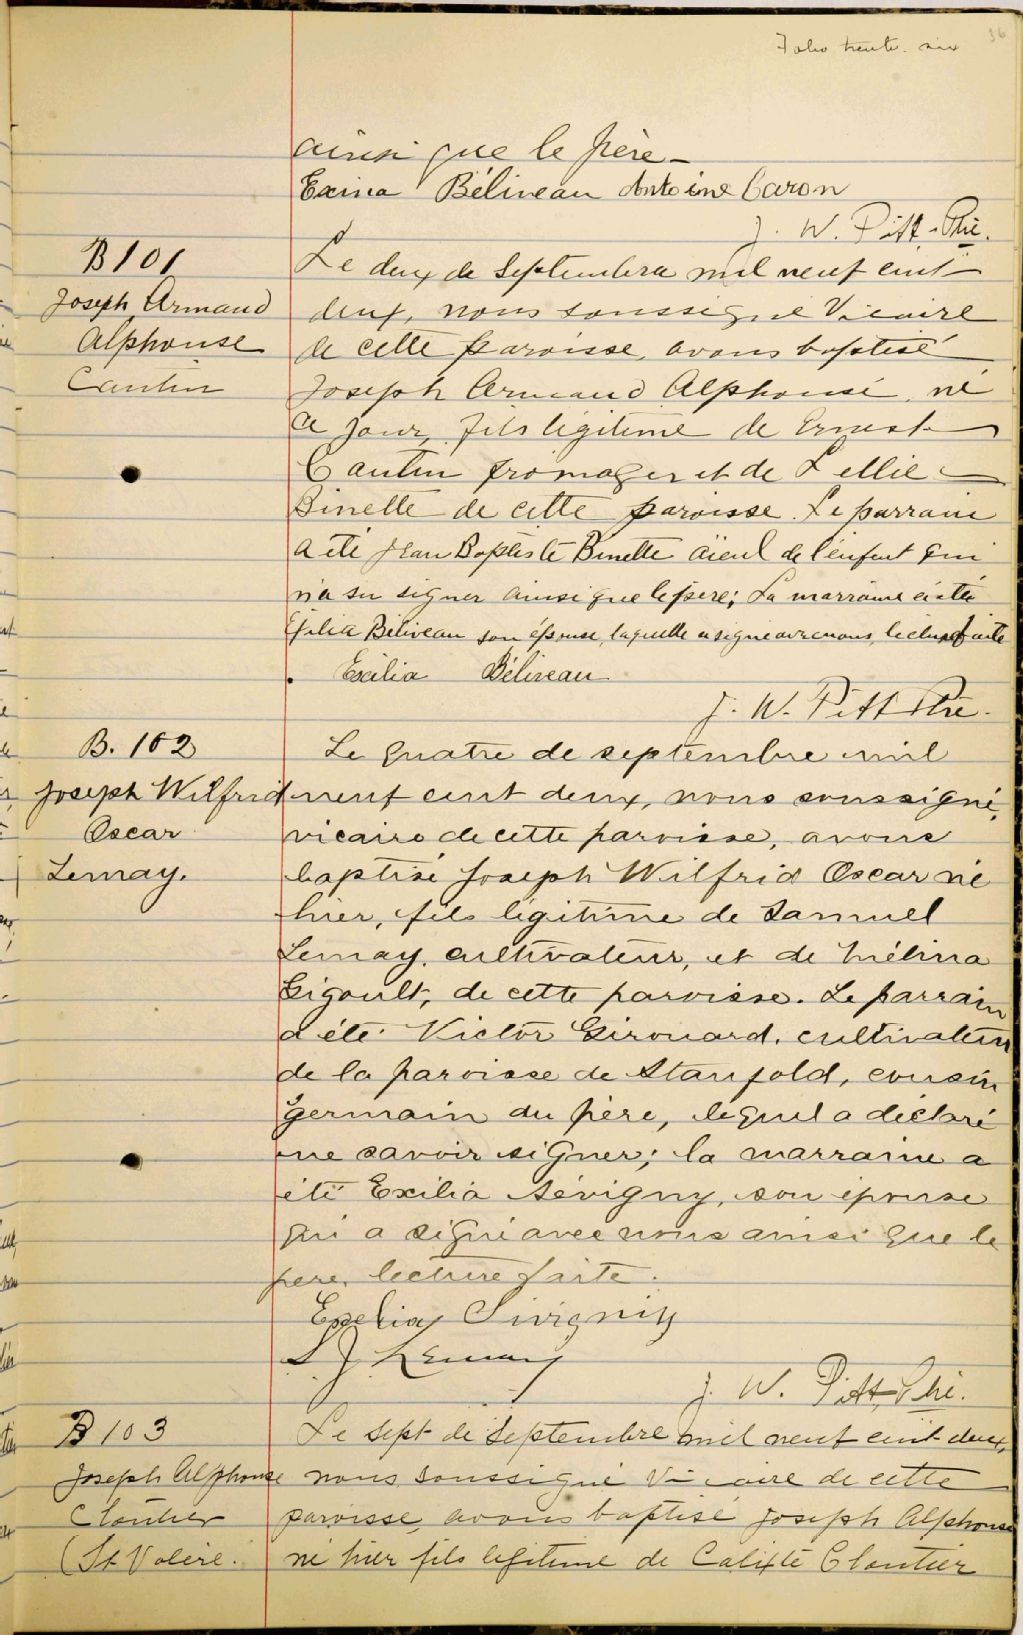 Folio trente-six 36
ainsi que le père –
Exina Béliveau Antoine Caron
J. W. Pitt Ptre.
B 101
Joseph Armand
Alphonse
Cantin
Le deux de Septembre mil neuf cent
deux, nous soussigné Vicaire
de cette paroisse, avons baptisé
Joseph Armand Alphonse, né
ce jour, fils légitime de Ernest
Cantin fromager et de Lellie
Binette de cette paroisse. Le parrain
a été Jean Baptiste Binette aïeul de l'enfant qui
n'a su signer ainsi que le père; La marraine a été
Béliveau son épouse, laquelle a signé avec nous, lecture faite
Exilia Béliveau
J. W. Pitt Ptre.
B. 102
Joseph Wilfrid
Oscar
Lemay.
Le quatre de septembre mil
neuf cent deux, nous soussigné,
vicaire de cette paroisse, avons
baptisé Joseph Wilfrid Oscar né
hier, fils légitime de Samuel
Lemay, cultivateur, et de Mélina
Gigault, de cette paroisse. Le parrain
a été Victor Girouard, cultivateur
de la paroisse de Stanfold, cousin
germain du père, lequel a déclaré
ne savoir signer; la marraine a
été Exilia Sévigny, son épouse
qui a signé avec nous ainsi que le
père, lecture faite.
Exelia Sivigniy
S. J. Lemay
J. W. Pitt, Ptre.
B 103
Joseph Alphonse
Cloutier
(St Valère.
Le sept de Septembre mil neuf cent deux,
nous soussigné Vicaire de cette
paroisse, avons baptisé Joseph Alphonse
né hier fils légitime de Calixte Cloutier